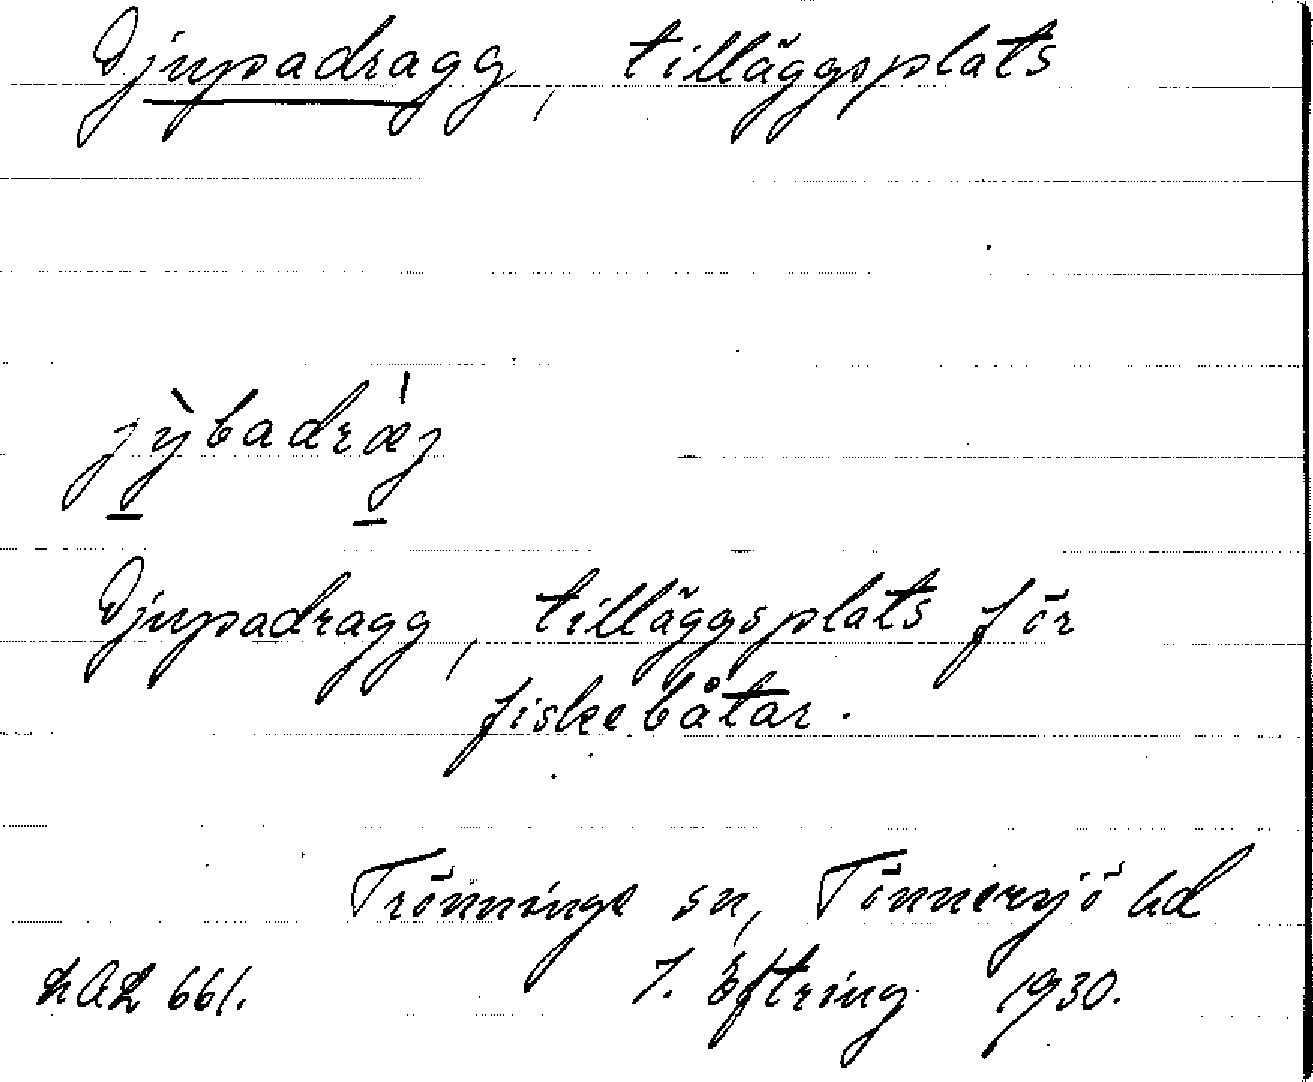 Djupadragg, tilläggsplats
jỳbadræ̍g
Djupadragg, tilläggsplats för
fiskebåtar.
Trönninge sn, Tönnersjö hd
LAL 661. J. Eftring 1930.